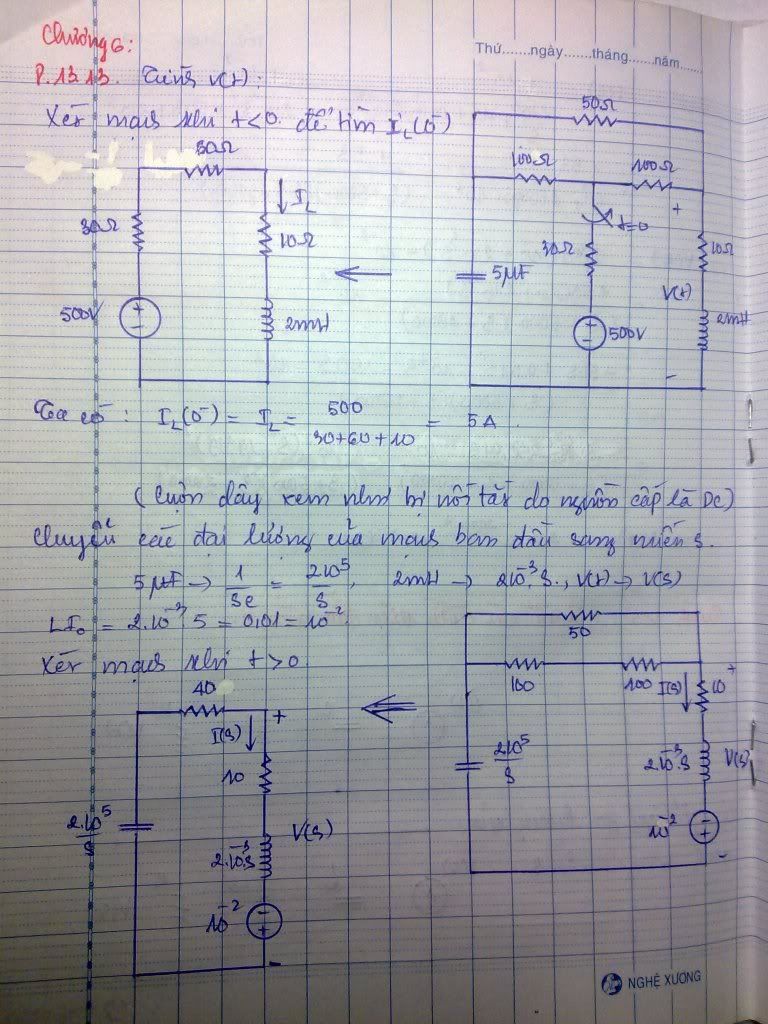 Chương 6:
Thứ.......ngày.......tháng.......năm.......
P.13.13. Tính v(t):
Xét mạch khi t<0 để tìm I_L(0⁻)
50Ω
100Ω
100Ω
30Ω
t=0
+
10Ω
5μF
V(t)
2mH
500V
-
30Ω
I_L
10Ω
500V
2mH
Ta có: I_L(0⁻) = I_L = 500 / (30+60+10) = 5A.
(cuộn dây xem như bị nối tắt do nguồn cấp là DC)
chuyển các đại lượng của mạch ban đầu sang miền s.
5μF → 1/sc = 2.10⁵/s, 2mH → 2.10⁻³.s., V(t) → V(s)
LI₀ = 2.10⁻³ 5 = 0,01 = 10⁻².
Xét mạch khi t>0
50
100
100
I(s)
+
10
2.10⁵/s
2.10⁻³.s
V(s)
10⁻²
-
40
I(s)
+
10
2.10⁵/s
V(s)
2.10⁻³.s
10⁻²
-
NGHỆ XƯƠNG